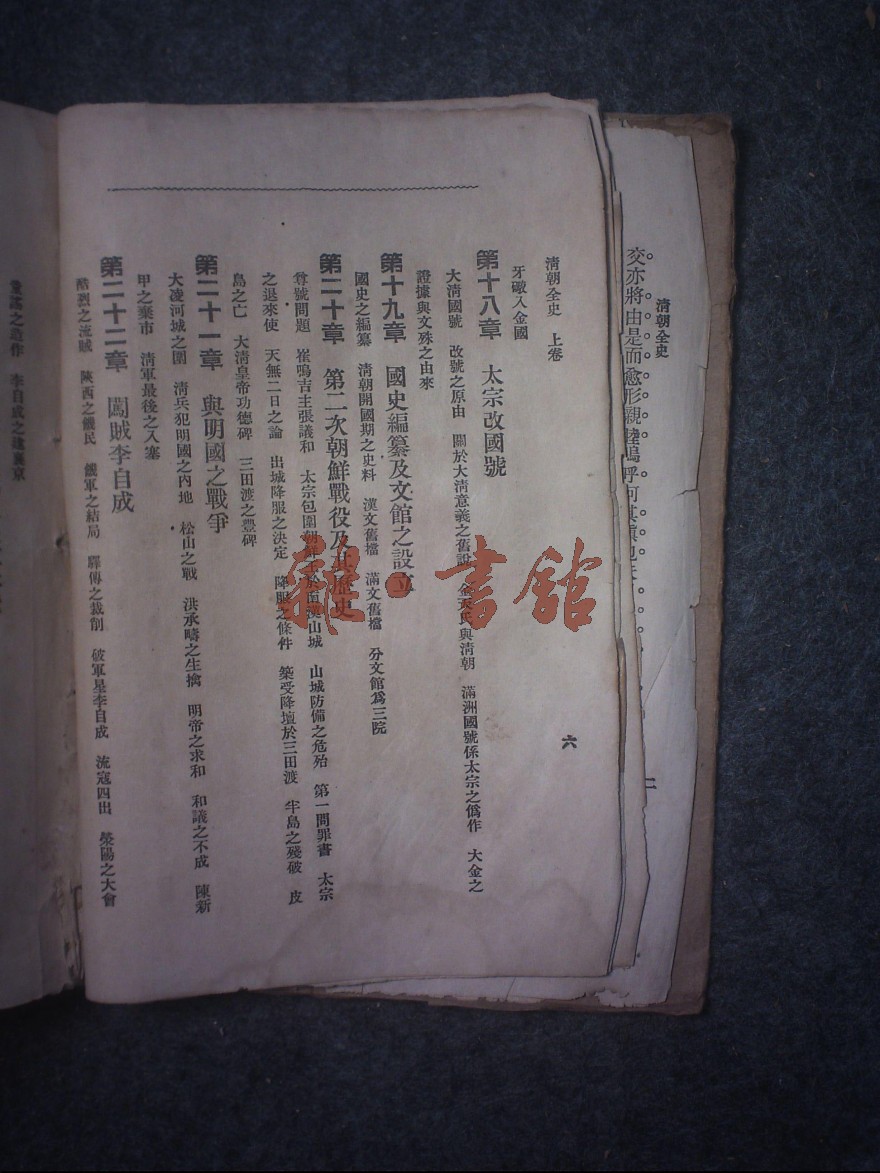 清朝全史
交亦將由是而愈形親睦嗚呼何其
二
清朝全史 上卷
六
牙礮入金國
第十八章 太宗改國號
大清國號 改號之原由 關於大清意義之舊說 金 氏與清朝 滿洲國號係太宗之僞作 大金之
證據與文殊之由來
第十九章 國史編纂及文館之設立
國史之編纂 清朝開國期之史料 漢文舊檔 滿文舊檔 分文館爲三院
第二十章 第二次朝鮮戰役及其歷史
尊號問題 崔鳴吉主張議和 太宗包圍朝鮮王於南漢山城 山城防備之危殆 第一問罪書 太宗
之退來使 天無二日之論 出城降服之決定 降服之條件 築受降壇於三田渡 半島之殘破 皮
島之亡 大清皇帝功德碑 三田渡之豐碑
第二十一章 與明國之戰爭
大凌河城之圍 清兵犯明國之內地 松山之戰 洪承疇之生擒 明帝之求和 和議之不成 陳新
甲之棄市 清軍最後之入塞
第二十二章 闖賊李自成
酷烈之流賊 陝西之饑民 饑軍之結局 驛傳之裁削 破軍星李自成 流寇四出 滎陽之大會
之造作 李自成之建襄京
雜·書館